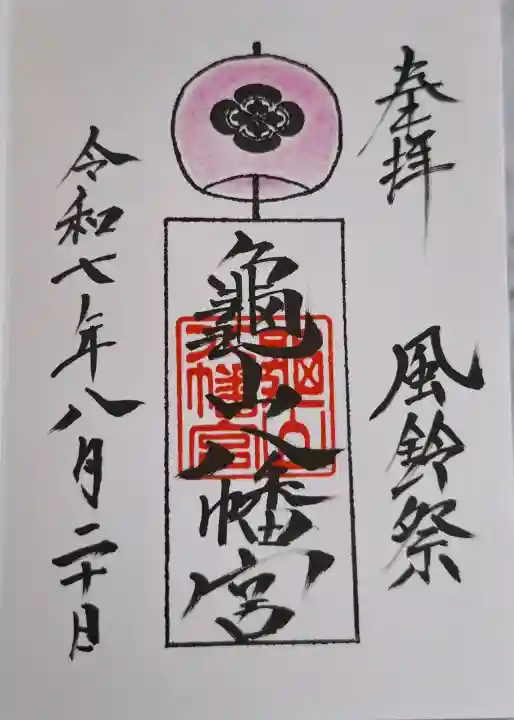 奉拝
風鈴祭
龜山八幡宮
令和七年八月二十日